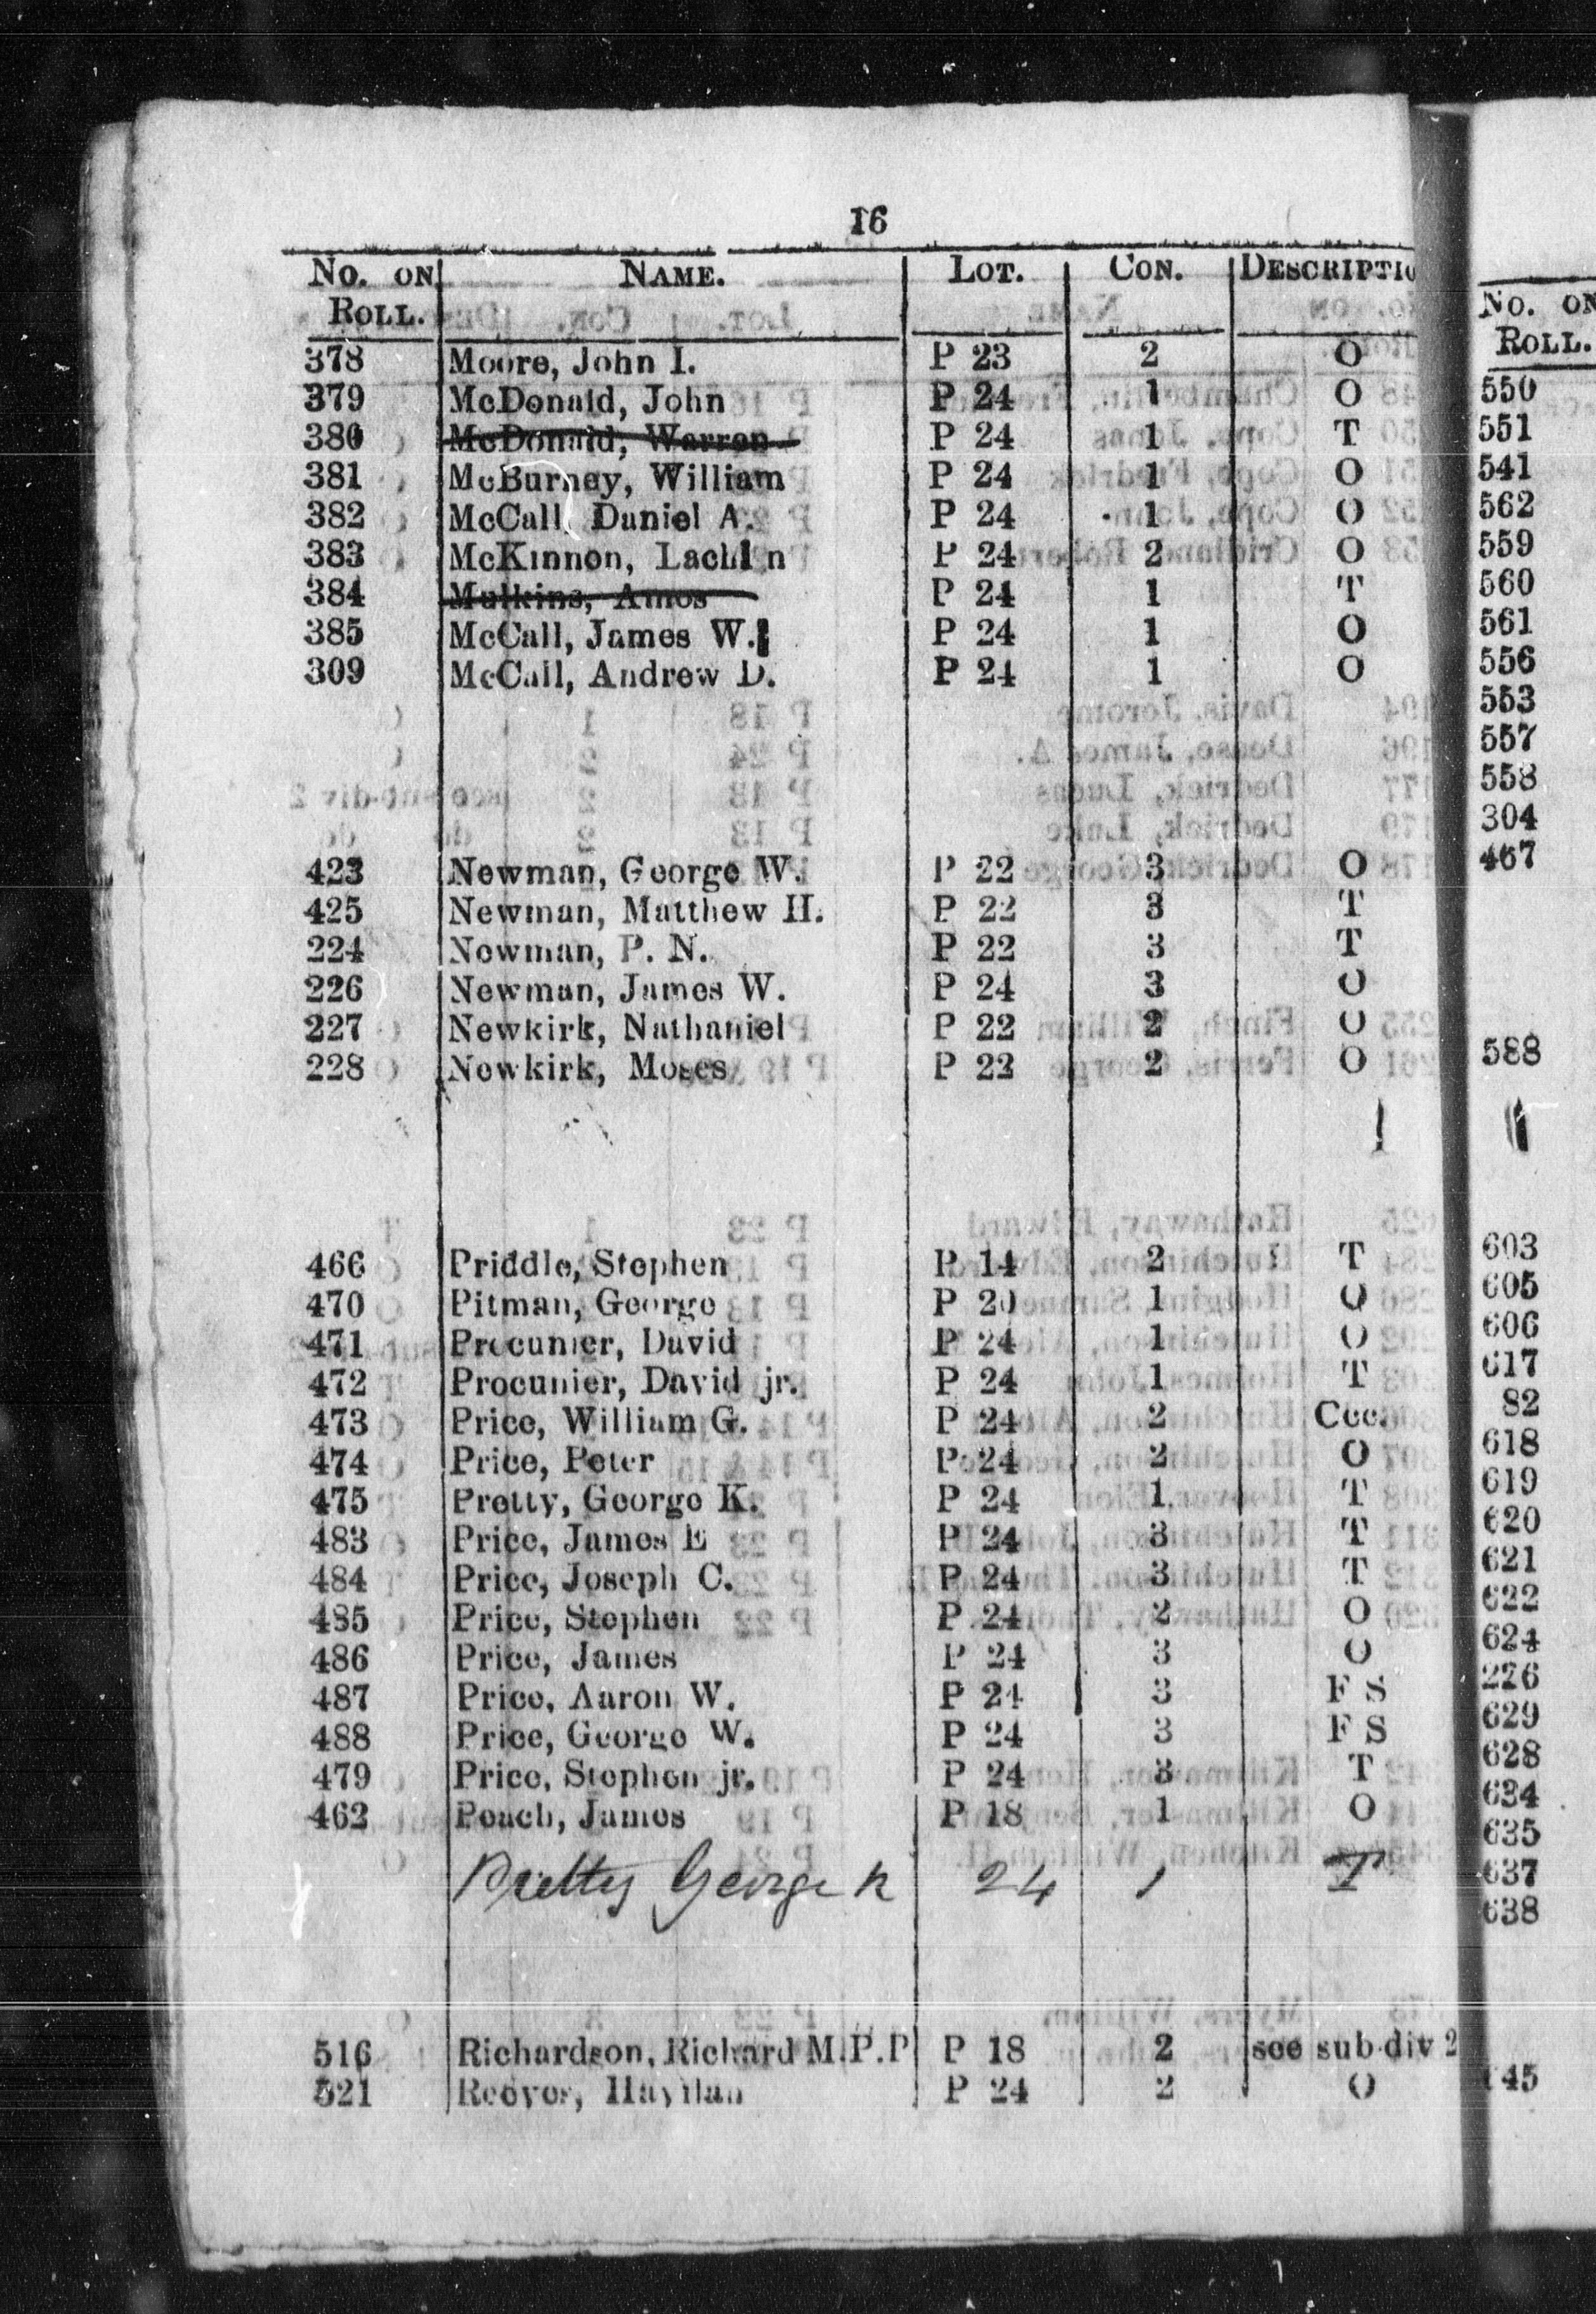 16
No. on Roll. Name. Lot. Con. Descriptio
378 Moore, John I. P 23 2 O
379 McDonald, John P 24 1 O
380 McDonald, Warren P 24 1 T
381 McBurney, William P 24 1 O
382 McCall, Daniel A. P 24 1 O
383 McKinnon, Lachl n P 24 2 O
384 Mulkins, Amos P 24 1 T
385 McCall, James W. P 24 1 O
309 McCall, Andrew D. P 24 1 O
423 Newman, George W. P 22 3 O
425 Newman, Matthew H. P 22 3 T
224 Newman, P. N. P 22 3 T
226 Newman, James W. P 24 3 O
227 Newkirk, Nathaniel P 22 2 O
228 Newkirk, Moses P 22 2 O
466 Priddle, Stephen P 14 2 T
470 Pitman, George P 20 1 O
471 Procunier, David P 24 1 O
472 Procunier, David jr. P 24 1 T
473 Price, William G. P 24 2 Occ.
474 Price, Peter P 24 2 O
475 Pretty, George K. P 24 1 T
483 Price, James E P 24 3 T
484 Price, Joseph C. P 24 3 T
485 Price, Stephen P 24 2 O
486 Price, James P 24 3 O
487 Price, Aaron W. P 24 3 F S
488 Price, George W. P 24 3 F S
479 Price, Stephen jr. P 24 3 T
462 Poach, James P 18 1 O
Pretty George K 24 1 T
516 Richardson, Richard M.P.P P 18 2 see sub-div 2
521 Reeves, Havilan P 24 2 O
No. on
Roll.
550
551
541
562
559
560
561
556
553
557
558
304
467
588
603
605
606
617
82
618
619
620
621
622
624
226
629
628
634
635
637
638
45